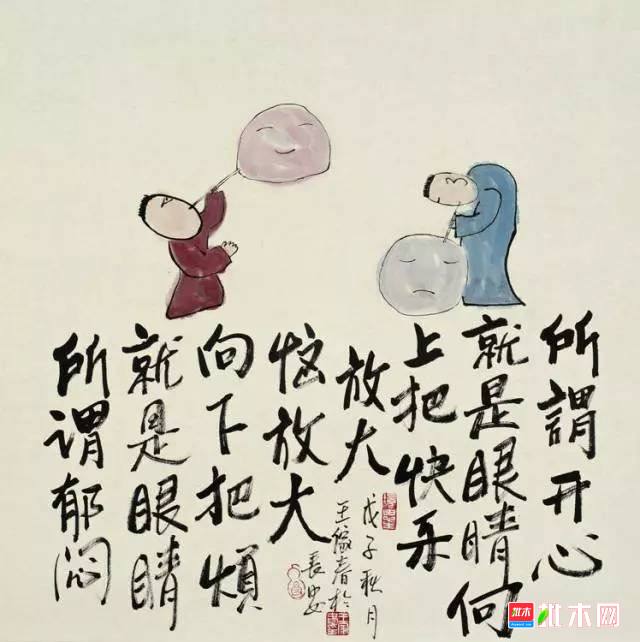 所謂开心
就是眼睛向
上把快乐
放大
所谓郁闷
就是眼睛
向下把煩
恼放大
戊子秋月
王家春於
長安
批木
批木网